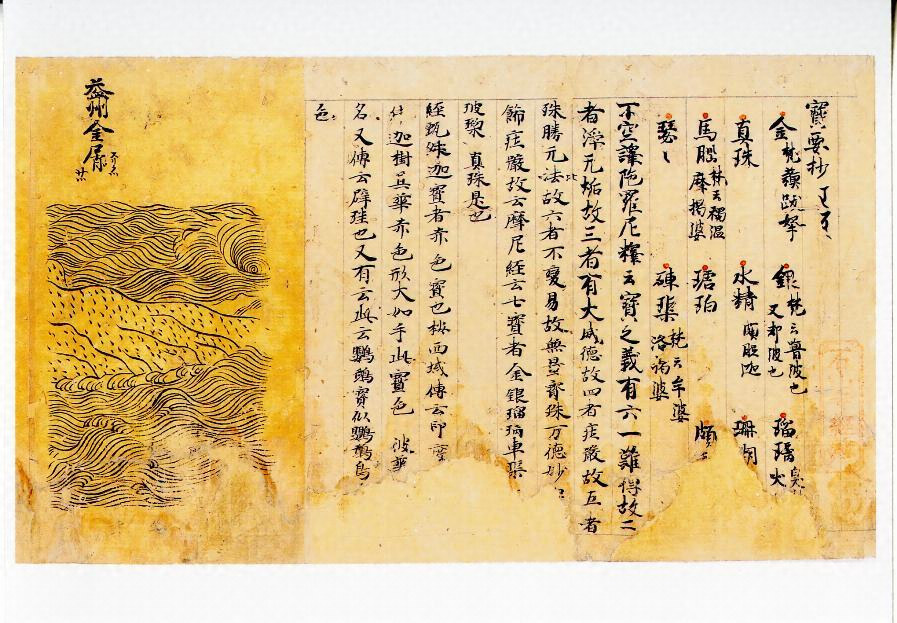 寳要抄
金 梵云蘓跋拏 銀 梵云魯波也 又 都波也 瑠璃 火
真珠 水精 珊瑚
馬脳 梵云 摩掲婆 琥珀 頗
瑟々 硨磲 梵云牟婆洛掲婆
不空譯陁羅尼釋云寳之義有六一難得故二
者淨无垢故三者有大威德故四者庄嚴故五者
珠勝无故六者不變易故無量齊珠万德妙
飾庄嚴故云摩尼經云七寳者金銀瑠璃車渠
玻瓈 真珠是也
經甄姝迦寳者赤色寳也 西域傳云印度
迦樹其華赤色形大如手此寳色 彼華
名又傳云辟珪也又有云此云鸚鵡寳似鸚鵡鳥
色
益州金屑